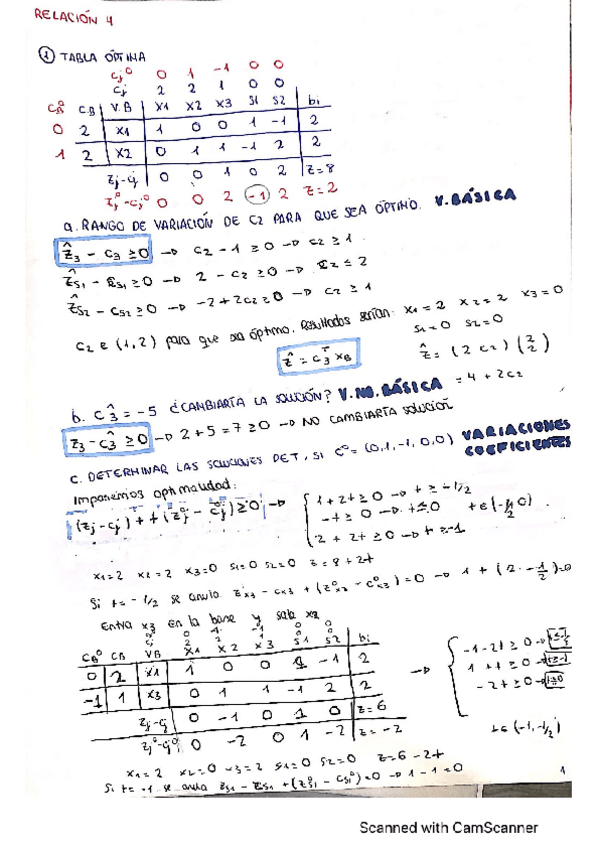 RELACIÓN 4
① TABLA ÓPTINA
Cj⁰ 0 1 -1 0 0
Cj 2 2 1 0 0
CB⁰ CB V.B X1 X2 X3 S1 S2 bi
0 2 X1 1 0 0 1 -1 2
1 2 X2 0 1 1 -1 2 2
Zj-Cj 0 0 1 0 2 Z=8
Zj⁰-Cj⁰ 0 0 2 -1 2 Z=2
a. RANGO DE VARIACIÓN DE C2 PARA QUE SEA ÓPTIMO. V.BÁSICA
Ẑ3 - C3 ≥0 → C2 - 1 ≥0 → C2 ≥ 1.
ẐS1 - CS1 ≥0 → 2 - C2 ≥0 → C2 ≤ 2
ẐS2 - CS2 ≥0 → -2+2C2 ≥0 → C2 ≥ 1
C2 ∈ (1,2) para que sea óptimo. Resultados serían: X1 = 2 X2 = 2 X3 = 0
S1 = 0 S2=0
ẑ = C3ᵀ XB
Ẑ = (2 C2) (2 2)
= 4 + 2C2
b. Ĉ3 = -5 ¿CAMBIARÍA LA SOLUCIÓN? V.NO.BÁSICA
Z3 - Ĉ3 ≥0 → 2+5 = 7 ≥0 → NO CAMBIARÍA SOLUCIÓN
C. DETERMINAR LAS SOLUCIONES DE T, SI C⁰= (0,1,-1,0,0) VARIACIONES COEFICIENTES
Imponemos optimalidad:
(Zj - Cj) + t (Zj⁰ - Cj⁰) ≥0 →
1+2t ≥0 → t ≥ -1/2
-t ≥ 0 → t ≤0 t∈(-1/2, 0)
2 + 2t ≥0 → t ≥ -1
X1=2 X2=2 X3=0 S1=0 S2=0 Z = 8 + 2t
Si t = -1/2 se anula Zx3 - Cx3 + (Z⁰x3 - C⁰x3) = 0 → 1 + (2 · -1/2)=0
Entra X3 en la base y sale X2
Cj⁰ 0 1 -1 0 0
Cj 2 2 1 0 0
CB⁰ CB VB X1 X2 X3 S1 S2 bi
0 2 X1 1 0 0 1 -1 2
-1 1 X3 0 1 1 -1 2 2
Zj-Cj 0 -1 0 1 0 Z=6
Zj⁰-Cj⁰ 0 -2 0 1 -2 Z = -2
-1-2t ≥0
1 + t ≥0
-2t ≥0
t∈ (-1, -1/2)
X1=2 X2=0 X3=2 S1=0 S2=0 Z=6-2t
Si t=-1 se anula ZS1 - CS1 + (Z⁰S1 - CS1⁰) =0 → 1-1=0
1
Scanned with CamScanner